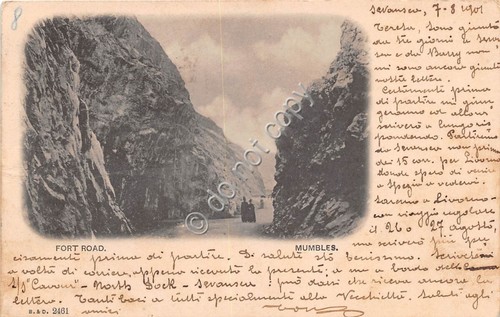 8
Swansea, 7-8-1901
Teresa, sono giunto
da tre giorni a Swan
sea e da Barry non
mi sono ancora giunte
vostre lettere.
Certamente prima
di partire mi giun
geranno ed allora
scriverò a lungo ris
pondendo. Partiremo
da Swansea non prima
dei 15 corr. per Livorno
donde spero di venire
a Spezia a vedervi.
Saremo a Livorno
con viaggio regolare
il 26 o 27 agosto,
ma scriverò più
cisamente prima di partire. Di salute sto benissimo. Scrivetemi
a volta di corriere, appena ricevuta la presente, a me a bordo della
S/S "Cavour" - North Dock - Swansea: può darsi che riceva ancora la
lettera. Tanti baci a tutti specialmente alla Vecchietta. Saluti agli
amici
FORT ROAD.
MUMBLES.
do not copy
R & D. 2461